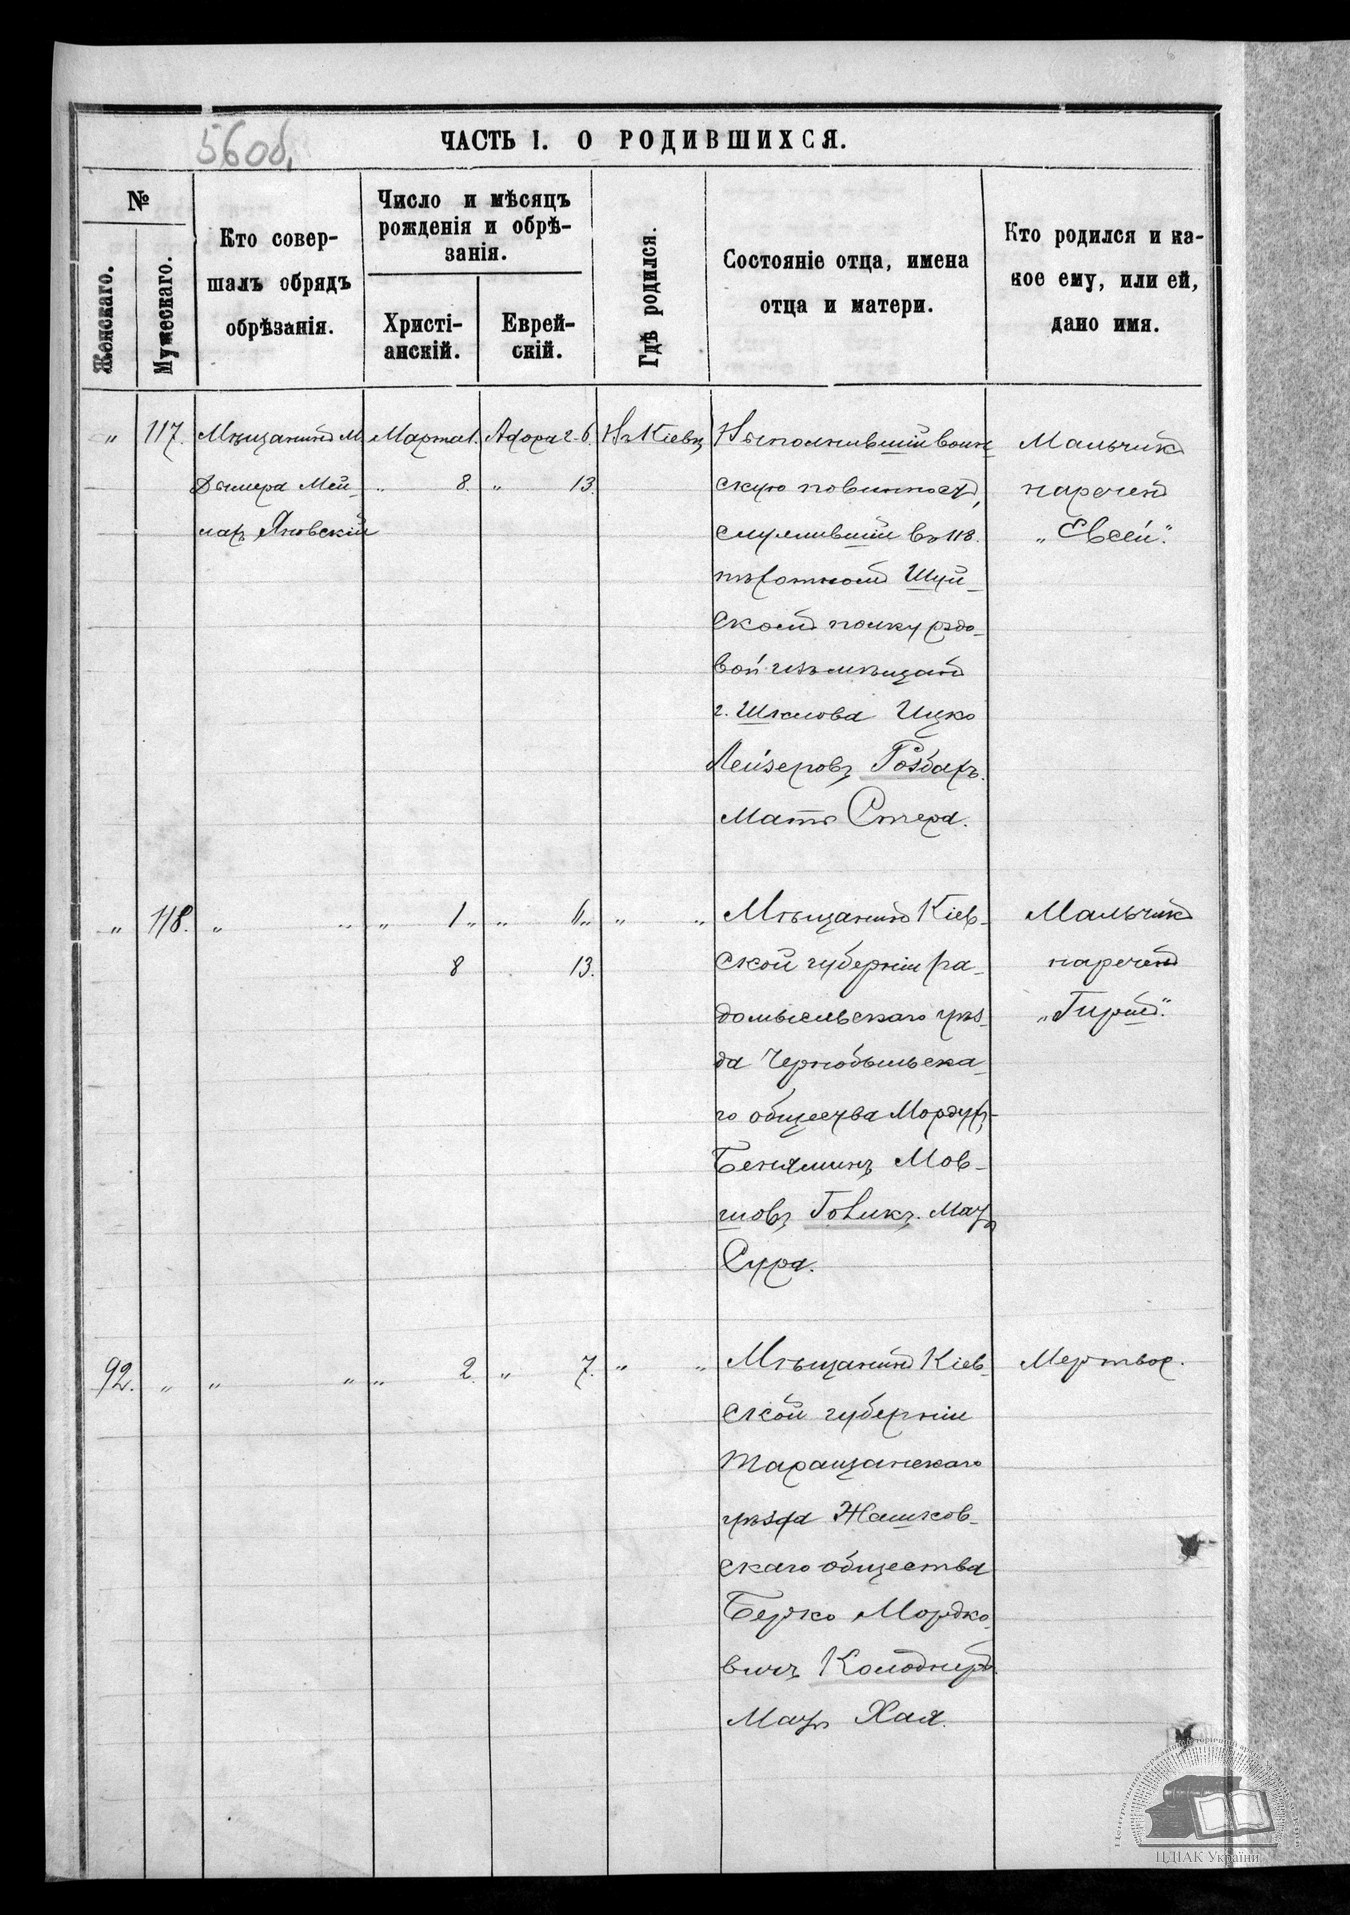 56об,
ЧАСТЬ I. О РОДИВШИХСЯ.
№
Женскаго.
Мужескаго.
Кто совер-
шалъ обрядъ
обрѣзанія.
Число и мѣсяцъ
рожденія и обрѣ-
занія.
Христі-
анскій.
Еврей-
скій.
Гдѣ родился.
Состояніе отца, имена
отца и матери.
Кто родился и ка-
кое ему, или ей,
дано имя.
„ 117. Мѣщанинъ М. Марта 1. Адора 2. 6. Въ Кіевѣ
Дымера Мей-
лахъ Яновскій
„ 8. „ 13.
Выполнившій воин-
скую повинность,
служившій въ 118.
пѣхотномъ Шуй-
скомъ полку рядо-
вой изъ мѣщанъ
г. Шклова Ицко
Лейзеровъ
Мать
Мальчикъ
нареченъ
„Евсей".
„ 118. „ „ „ 1 „ „ 6 „ „ „
8 13.
Мѣщанинъ Кіев-
ской губерніи Ра-
домысльскаго уѣз-
да Чернобыльска-
го общества Мордухъ-
Беньяминъ Мов-
шовъ Мать
Сура.
Мальчикъ
нареченъ
„Гиршъ".
92. „ „ „ „ 2. „ 7. „ „
Мѣщанинъ Кіев-
ской губерніи
Таращанскаго
уѣзда Жашков-
скаго общества
Берко Мордко-
вичъ Колоднеръ.
Мать Хая.
Мертвое.
ЦДІАК України